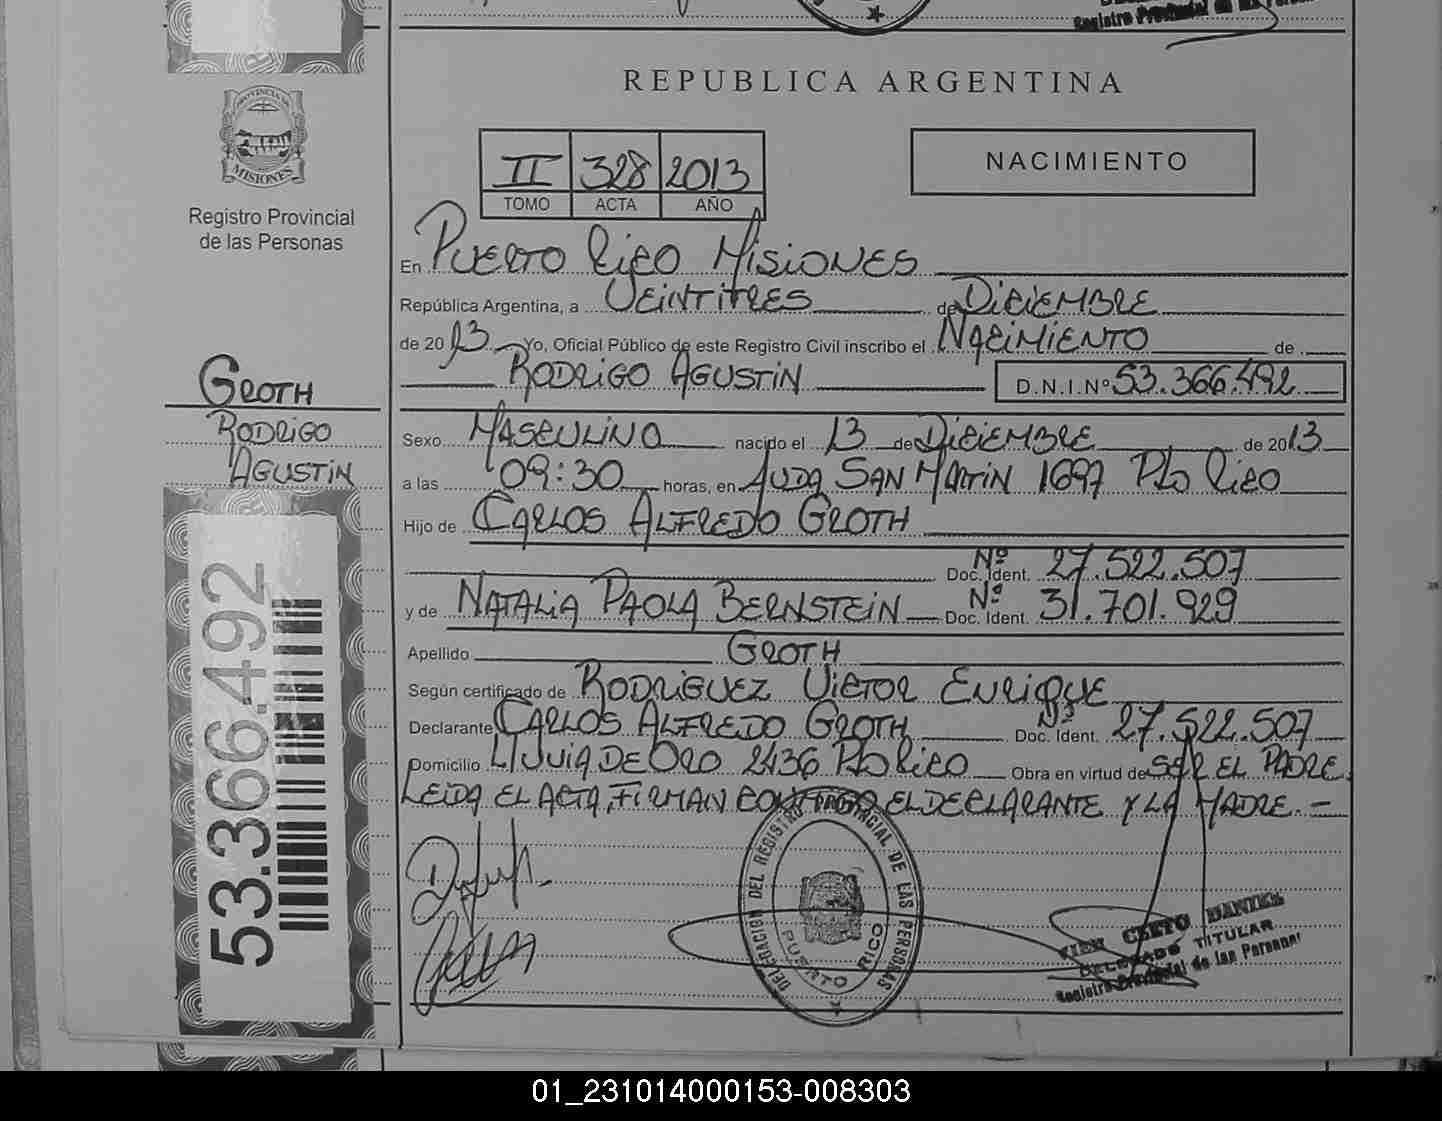 Registro Provincial de las Personas
REPUBLICA ARGENTINA
NACIMIENTO
II 328 2013
TOMO ACTA AÑO
PROVINCIA DE
MISIONES
Registro Provincial
de las Personas
En Puerto Rico Misiones
República Argentina, a Veintitres de Diciembre
de 2013 Yo, Oficial Público de este Registro Civil inscribo el Nacimiento de
Rodrigo Agustin D.N.I.Nº 53.366.492
Groth
Rodrigo
Agustin
Sexo Masculino nacido el 13 de Diciembre de 2013
a las 09:30 horas, en Avda San Martin 1697 Pto Rico
Hijo de Carlos Alfredo Groth
Doc. Ident. Nº 27.522.507
y de Natalia Paola Bernstein Doc. Ident. Nº 31.701.929
Apellido Groth
Según certificado de Rodriguez Victor Enrique
Declarante Carlos Alfredo Groth Doc. Ident. Nº 27.522.507
Domicilio Lluvia de Oro 2436 Pto Rico Obra en virtud de Ser el Padre.
Leida el Acta, Firman conmigo el declarante y la Madre.-
53.366.492
DELEGACION DEL REGISTRO PROVINCIAL DE LAS PERSONAS
PUERTO RICO
CLETO DANIEL
DELEGADO TITULAR
Registro Provincial de las Personas
01_231014000153-008303